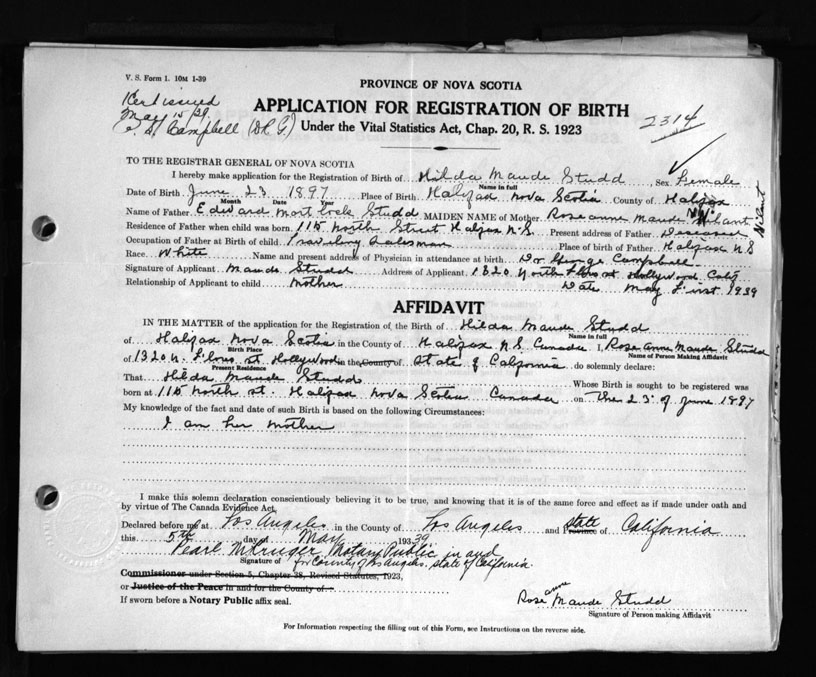 V. S. Form 1. 10M 1-39
PROVINCE OF NOVA SCOTIA
Cert issued
May 15/39
APPLICATION FOR REGISTRATION OF BIRTH
2314
Campbell (D R G)
Under the Vital Statistics Act, Chap. 20, R. S. 1923
TO THE REGISTRAR GENERAL OF NOVA SCOTIA
I hereby make application for the Registration of Birth of Hilda Maude Studd Sex Female
Name in full
Date of Birth June 23 1897 Place of Birth Halifax Nova Scotia County of Halifax
Month Day Year
Name of Father Edward Studd MAIDEN NAME of Mother Rose anne Maude
Residence of Father when child was born. 115 North Street Halifax N.S. Present address of Father Deceased
Occupation of Father at Birth of child Traveling Salesman Place of birth of Father Halifax N S
Race. White Name and present address of Physician in attendance at birth Dr George Campbell
Signature of Applicant Maude Studd Address of Applicant 1320 North Hollywood Calif
Relationship of Applicant to child Mother Date May First 1939
AFFIDAVIT
IN THE MATTER of the application for the Registration of the Birth of Hilda Maude Studd
Name in full
of Halifax Nova Scotia in the County of Halifax N.S. Canada I, Rose Anne Maude Studd
Birth Place Name of Person Making Affidavit
of 1320 N. st. Hollywood in the County of State of California do solemnly declare:
Present Residence
That Hilda Maude Studd Whose Birth is sought to be registered was
born at 115 North st. Halifax Nova Scotia Canada on the 23 of June 1897
My knowledge of the fact and date of such Birth is based on the following Circumstances:
I am her mother
I make this solemn declaration conscientiously believing it to be true, and knowing that it is of the same force and effect as if made under oath and
by virtue of The Canada Evidence Act.
Declared before me at Los Angeles in the County of Los Angeles and Province of State California
this 5th day of May 1939
Pearl M Kruger, Notary Public in and
Signature of for County of Los Angeles, State of California.
Commissioner under Section 5, Chapter 38, Revised Statutes, 1923,
or Justice of the Peace in and for the County of
If sworn before a Notary Public affix seal.
Rose anne Maude Studd
Signature of Person making Affidavit
For Information respecting the filling out of this Form, see Instructions on the reverse side.